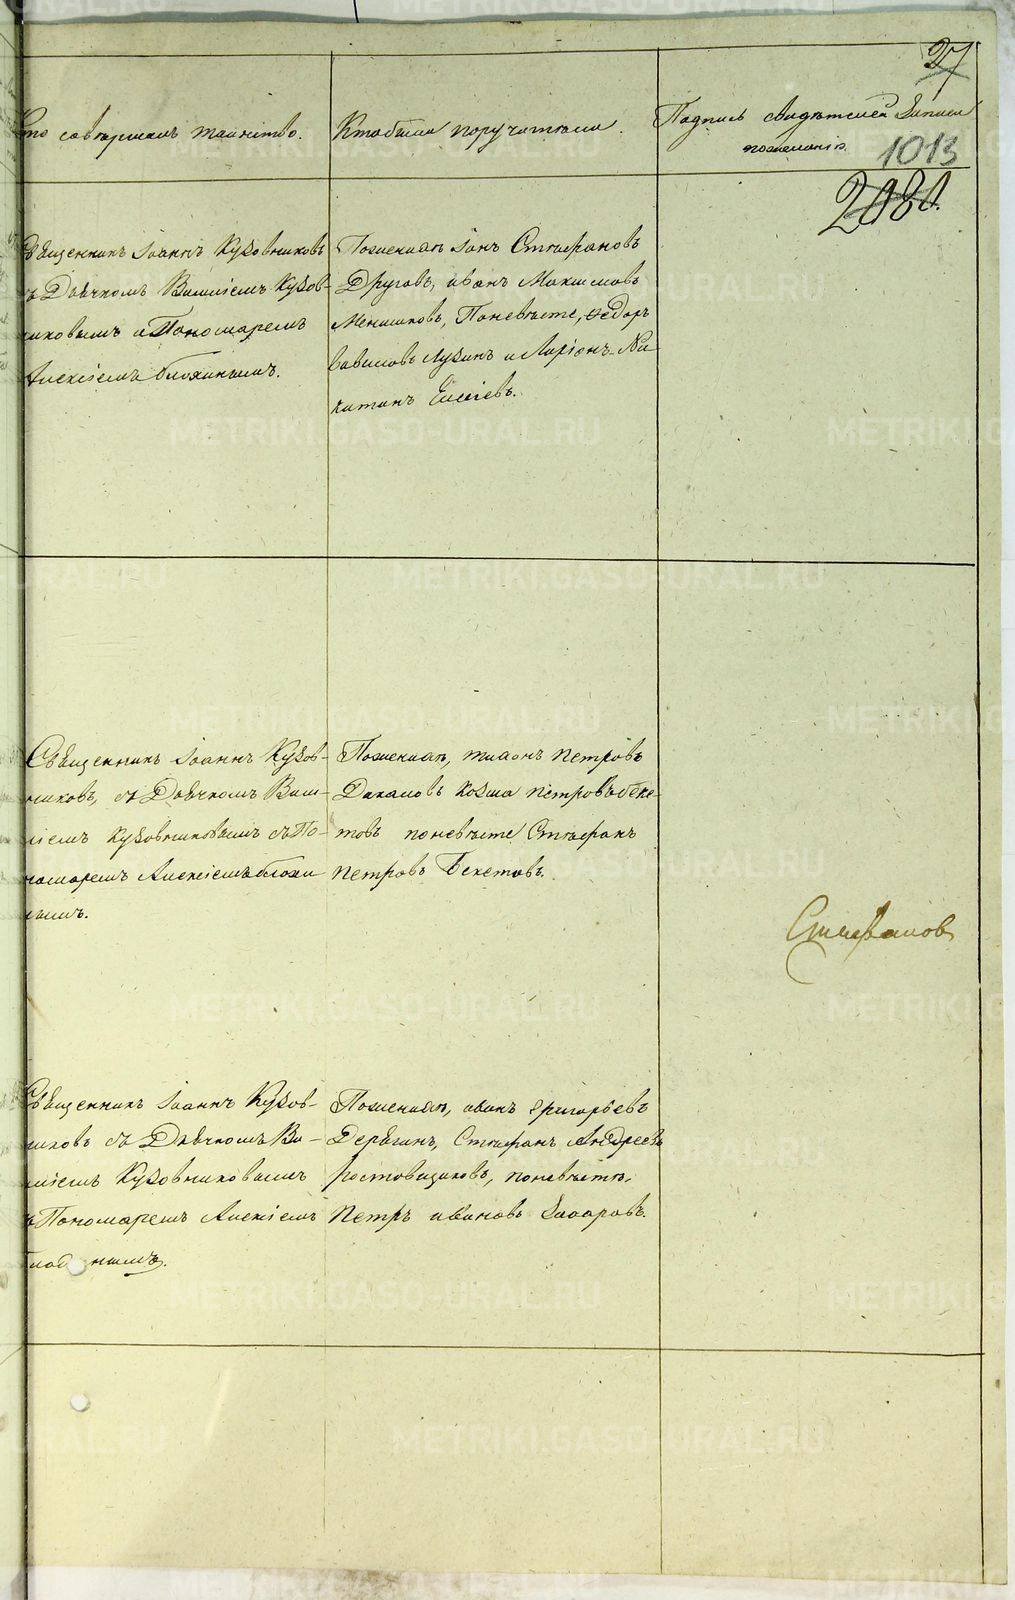 27
Кто совершалъ таинство.
Кто были поручители.
Подпись свидѣтелей записи
по желанію.
1013
2080.
Священникъ Іоаннъ Кузовниковъ
съ Дьячкомъ Василіемъ Кузов-
никовымъ и Пономаремъ
Алексіемъ Блохинымъ.
По женихѣ Іанъ Стефановъ
Друговъ, иванъ Максимовъ
Меншиковъ, По невѣсте, Ѳедоръ
Вавиловъ Лузинъ и Ларіонъ Ни
китинъ Елисѣевъ.
Священникъ Іоаннъ Кузов-
никовъ, съ Дьячкомъ Васи-
ліемъ Кузовниковымъ съ По-
номаремъ Алексіемъ Блохи
нымъ.
По женихѣ, тихонъ петровъ
козма петровъ беке-
товъ по невѣсте Стефанъ
петровъ Бекетовъ.
Стефановъ
Священникъ Іоаннъ Кузов-
никовъ съ Дьячкомъ Ва-
силіемъ Кузовниковымъ
и Пономаремъ Алексіемъ
Блохинымъ.
По женихѣ, иванъ григорьевъ
Дерягинъ, Стефанъ Андреевъ
ростовщиковъ, по невѣсте,
петръ ивановъ Захаровъ.
METRIKI.GASO-URAL.RU